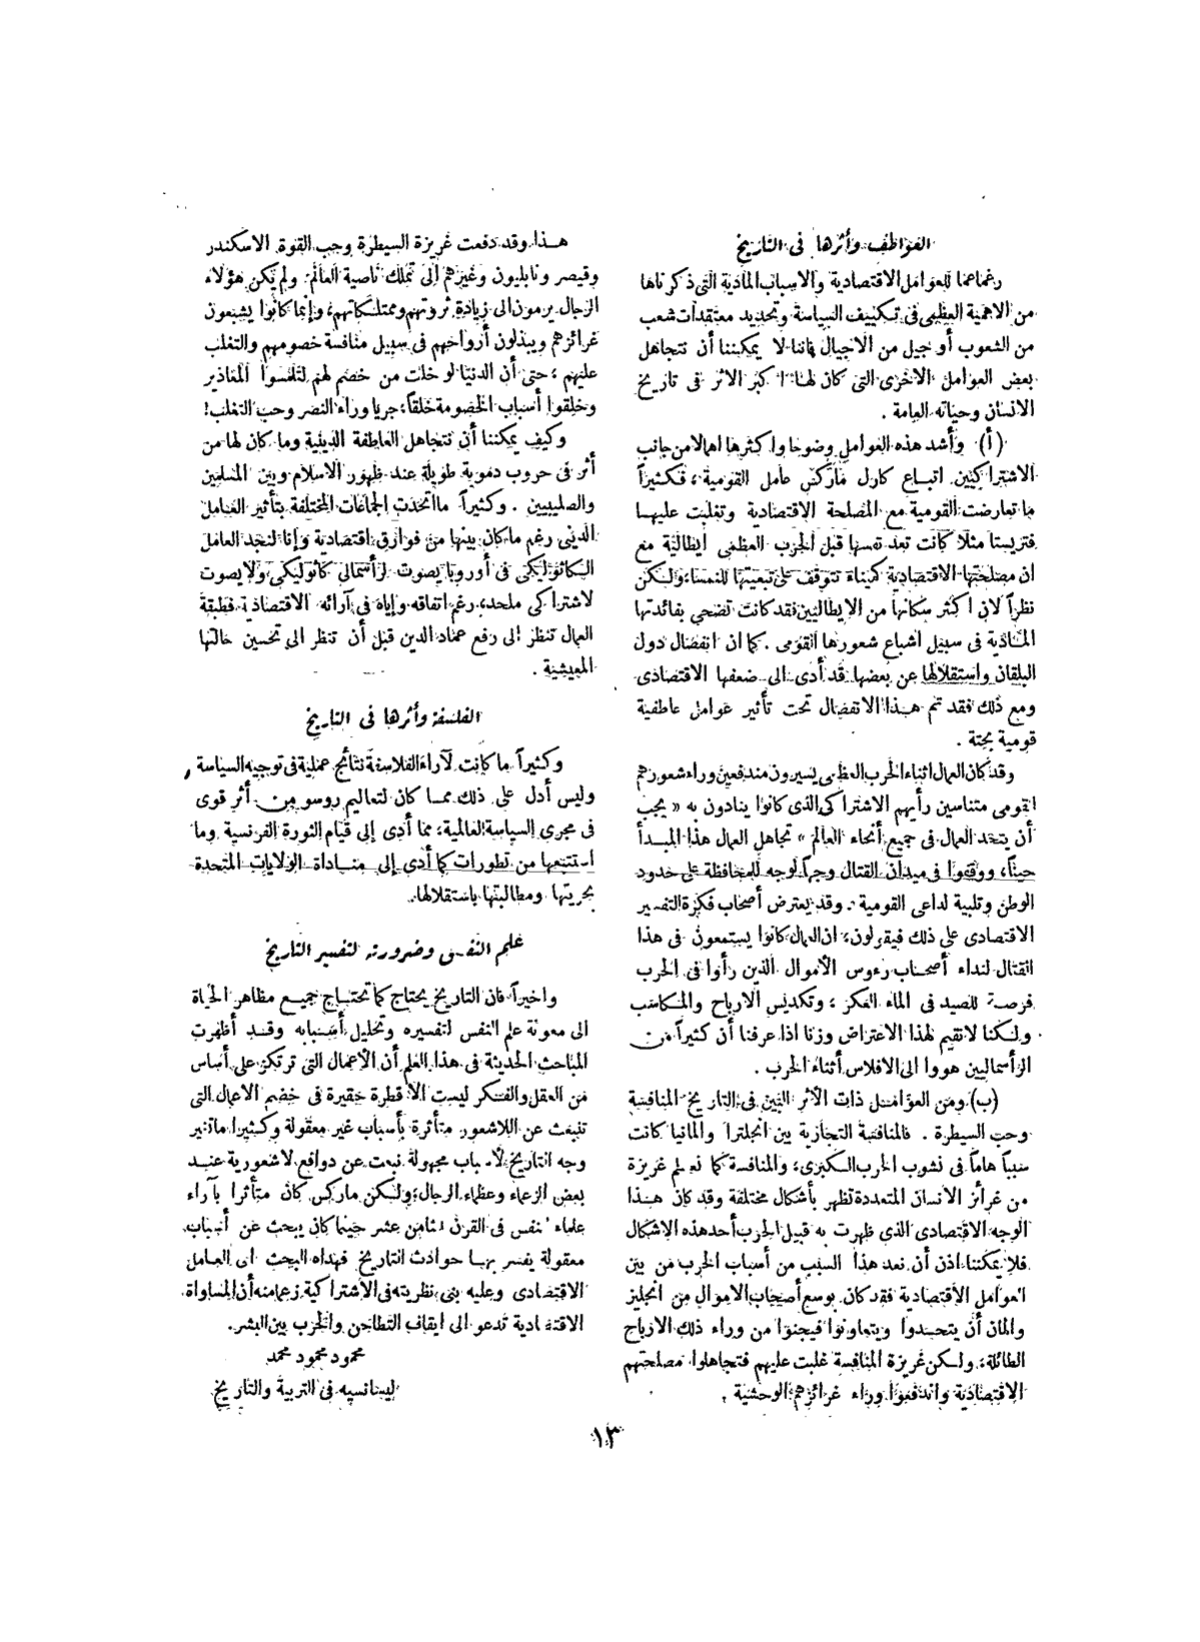 العواطف وأثرها فى التاريخ
رغماعما للعوامل الاقتصادية والاسباب المادية التى ذكرناها
من الاهمية العظمى فى تكييف السياسة وتحديد معتقدات شعب
من الشعوب أو جيل من الاجيال فاننا لا يمكننا أن نتجاهل
بعض العوامل الاخرى التى كان لها أكبر الاثر فى تاريخ
الانسان وحياته العامة .
(أ) وأشد هذه العوامل وضوحا وأكثرها اهمالا من جانب
الاشتراكيين اتباع كارل ماركس عامل القومية ، فكثيراً
ما تعارضت القومية مع المصلحة الاقتصادية وتغلبت عليها
فتريستا مثلا كانت تعد نفسها قبل الحرب العظمى ايطالية مع
ان مصلحتها الاقتصادية كميناء تتوقف على تبعيتها للنمسا، ولكن
نظراً لان اكثر سكانها من الايطاليين فقد كانت تضحى بفائدتها
المادية فى سبيل اشباع شعورها القومى . كما ان انفصال دول
البلقان واستقلالها عن بعضها قد أدى الى ضعفها الاقتصادى
ومع ذلك فقد تم هذا الانفصال تحت تأثير عوامل عاطفية
قومية بحتة .
وقد كان العمال اثناء الحرب العظمى يسيرون مندفعين وراء شعورهم
القومى متناسين رأيهم الاشتراكى الذى كانوا ينادون به « يجب
أن يتحد العمال فى جميع أنحاء العالم » تجاهل العمال هذا المبدأ
حيناً، ووقفوا فى ميدان القتال وجهاً لوجه للمحافظة على حدود
الوطن وتلبية لداعى القومية . وقد يعترض أصحاب فكرة التفسير
الاقتصادى على ذلك فيقولون، ان العمال كانوا يستمعون فى هذا
القتال لنداء أصحاب رءوس الأموال الذين رأوا فى الحرب
فرصة للصيد فى الماء العكر ، وتكديس الارباح والمكاسب
ولكنا لا نقيم لهذا الاعتراض وزنا اذا عرفنا أن كثيراً من
الرأسماليين هووا الى الافلاس أثناء الحرب .
(ب) ومن العوامل ذات الأثر البين فى التاريخ المنافسة
وحب السيطرة . فالمنافسة التجارية بين انجلترا والمانيا كانت
سبباً هاماً فى نشوب الحرب الكبرى، والمنافسة كما نعلم غريزة
من غرائز الانسان المتعددة تظهر بأشكال مختلفة وقد كان هذا
الوجه الاقتصادى الذى ظهرت به قبيل الحرب أحد هذه الاشكال
فلا يمكننا اذن أن نعد هذا السبب من أسباب الحرب من بين
العوامل الاقتصادية فقد كان بوسع أصحاب الاموال من انجليز
والمان أن يتحدوا ويتعاونوا فيجنوا من وراء ذلك الارباح
الطائلة، ولكن غريزة المنافسة غلبت عليهم فتجاهلوا مصلحتهم
الاقتصادية واندفعوا وراء غرائزهم الوحشية .
هذا وقد دفعت غريزة السيطرة وحب القوة الاسكندر
وقيصر ونابليون وغيرهم الى تملك ناصية العالم. ولم يكن هؤلاء
الرجال يرمون الى زيادة ثروتهم وممتلكاتهم، وإنما كانوا يشبعون
غرائزهم ويبذلون أرواحهم فى سبيل منافسة خصومهم والتغلب
عليهم ، حتى أن الدنيا لو خلت من خصم لهم لتلمسوا المعاذير
وخلقوا أسباب الخصومة خلقاً، جريا وراء النصر وحب التغلب!
وكيف يمكننا أن نتجاهل العاطفة الدينية وما كان لها من
أثر فى حروب دموية طويلة عند ظهور الاسلام وبين المسلمين
والصليبيين . وكثيراً ما اتحدت الجماعات المختلفة بتأثير العامل
الدينى رغم ما كان بينها من فوارق اقتصادية وإنا لنجد العامل
الكاثوليكى فى أوروبا يصوت لرأسمالى كاثوليكى، ولا يصوت
لاشتراكى ملحد، رغم اتفاقه وإياه فى آرائه الاقتصادية. فطبقة
العمال تنظر الى رفع عماد الدين قبل أن تنظر الى تحسين حالتها
المعيشية .
الفلسفة وأثرها فى التاريخ
وكثيراً ما كانت لآراء الفلاسفة نتائج عملية فى توجيه السياسة ،
وليس أدل على ذلك مما كان لتعاليم روسو من أثر قوى
فى مجرى السياسة العالمية، مما أدى إلى قيام الثورة الفرنسية وما
استتبعها من تطورات كما أدى إلى مناداة الولايات المتحدة
بحريتها ومطالبتها باستقلالها.
علم النفس وضرورته لتفسير التاريخ
واخيراً فان التاريخ يحتاج كما تحتاج جميع مظاهر الحياة
الى معونة علم النفس لتفسيره وتحليل أسبابه وقد أظهرت
المباحث الحديثة فى هذا العلم أن الأعمال التى ترتكز على أساس
من العقل والفكر ليست الا قطرة حقيرة فى خضم الاعمال التى
تنبعث عن اللاشعور متأثرة بأسباب غير معقولة وكثيرا ما تغير
وجه التاريخ لأسباب مجهولة نبعت عن دوافع لاشعورية عند
بعض الزعماء وعظماء الرجال، ولكن ماركس كان متأثرا بآراء
علماء النفس فى القرن الثامن عشر حينما كان يبحث عن أسباب
معقولة يفسر بها حوادث التاريخ فهداه البحث الى العامل
الاقتصادى وعليه بنى نظريته فى الاشتراكية زعما منه أن المساواة
الاقتصادية تدعو الى ايقاف التطاحن والحرب بين البشر.
محمود محمود محمد
ليسانسيه فى التربية والتاريخ
١٣